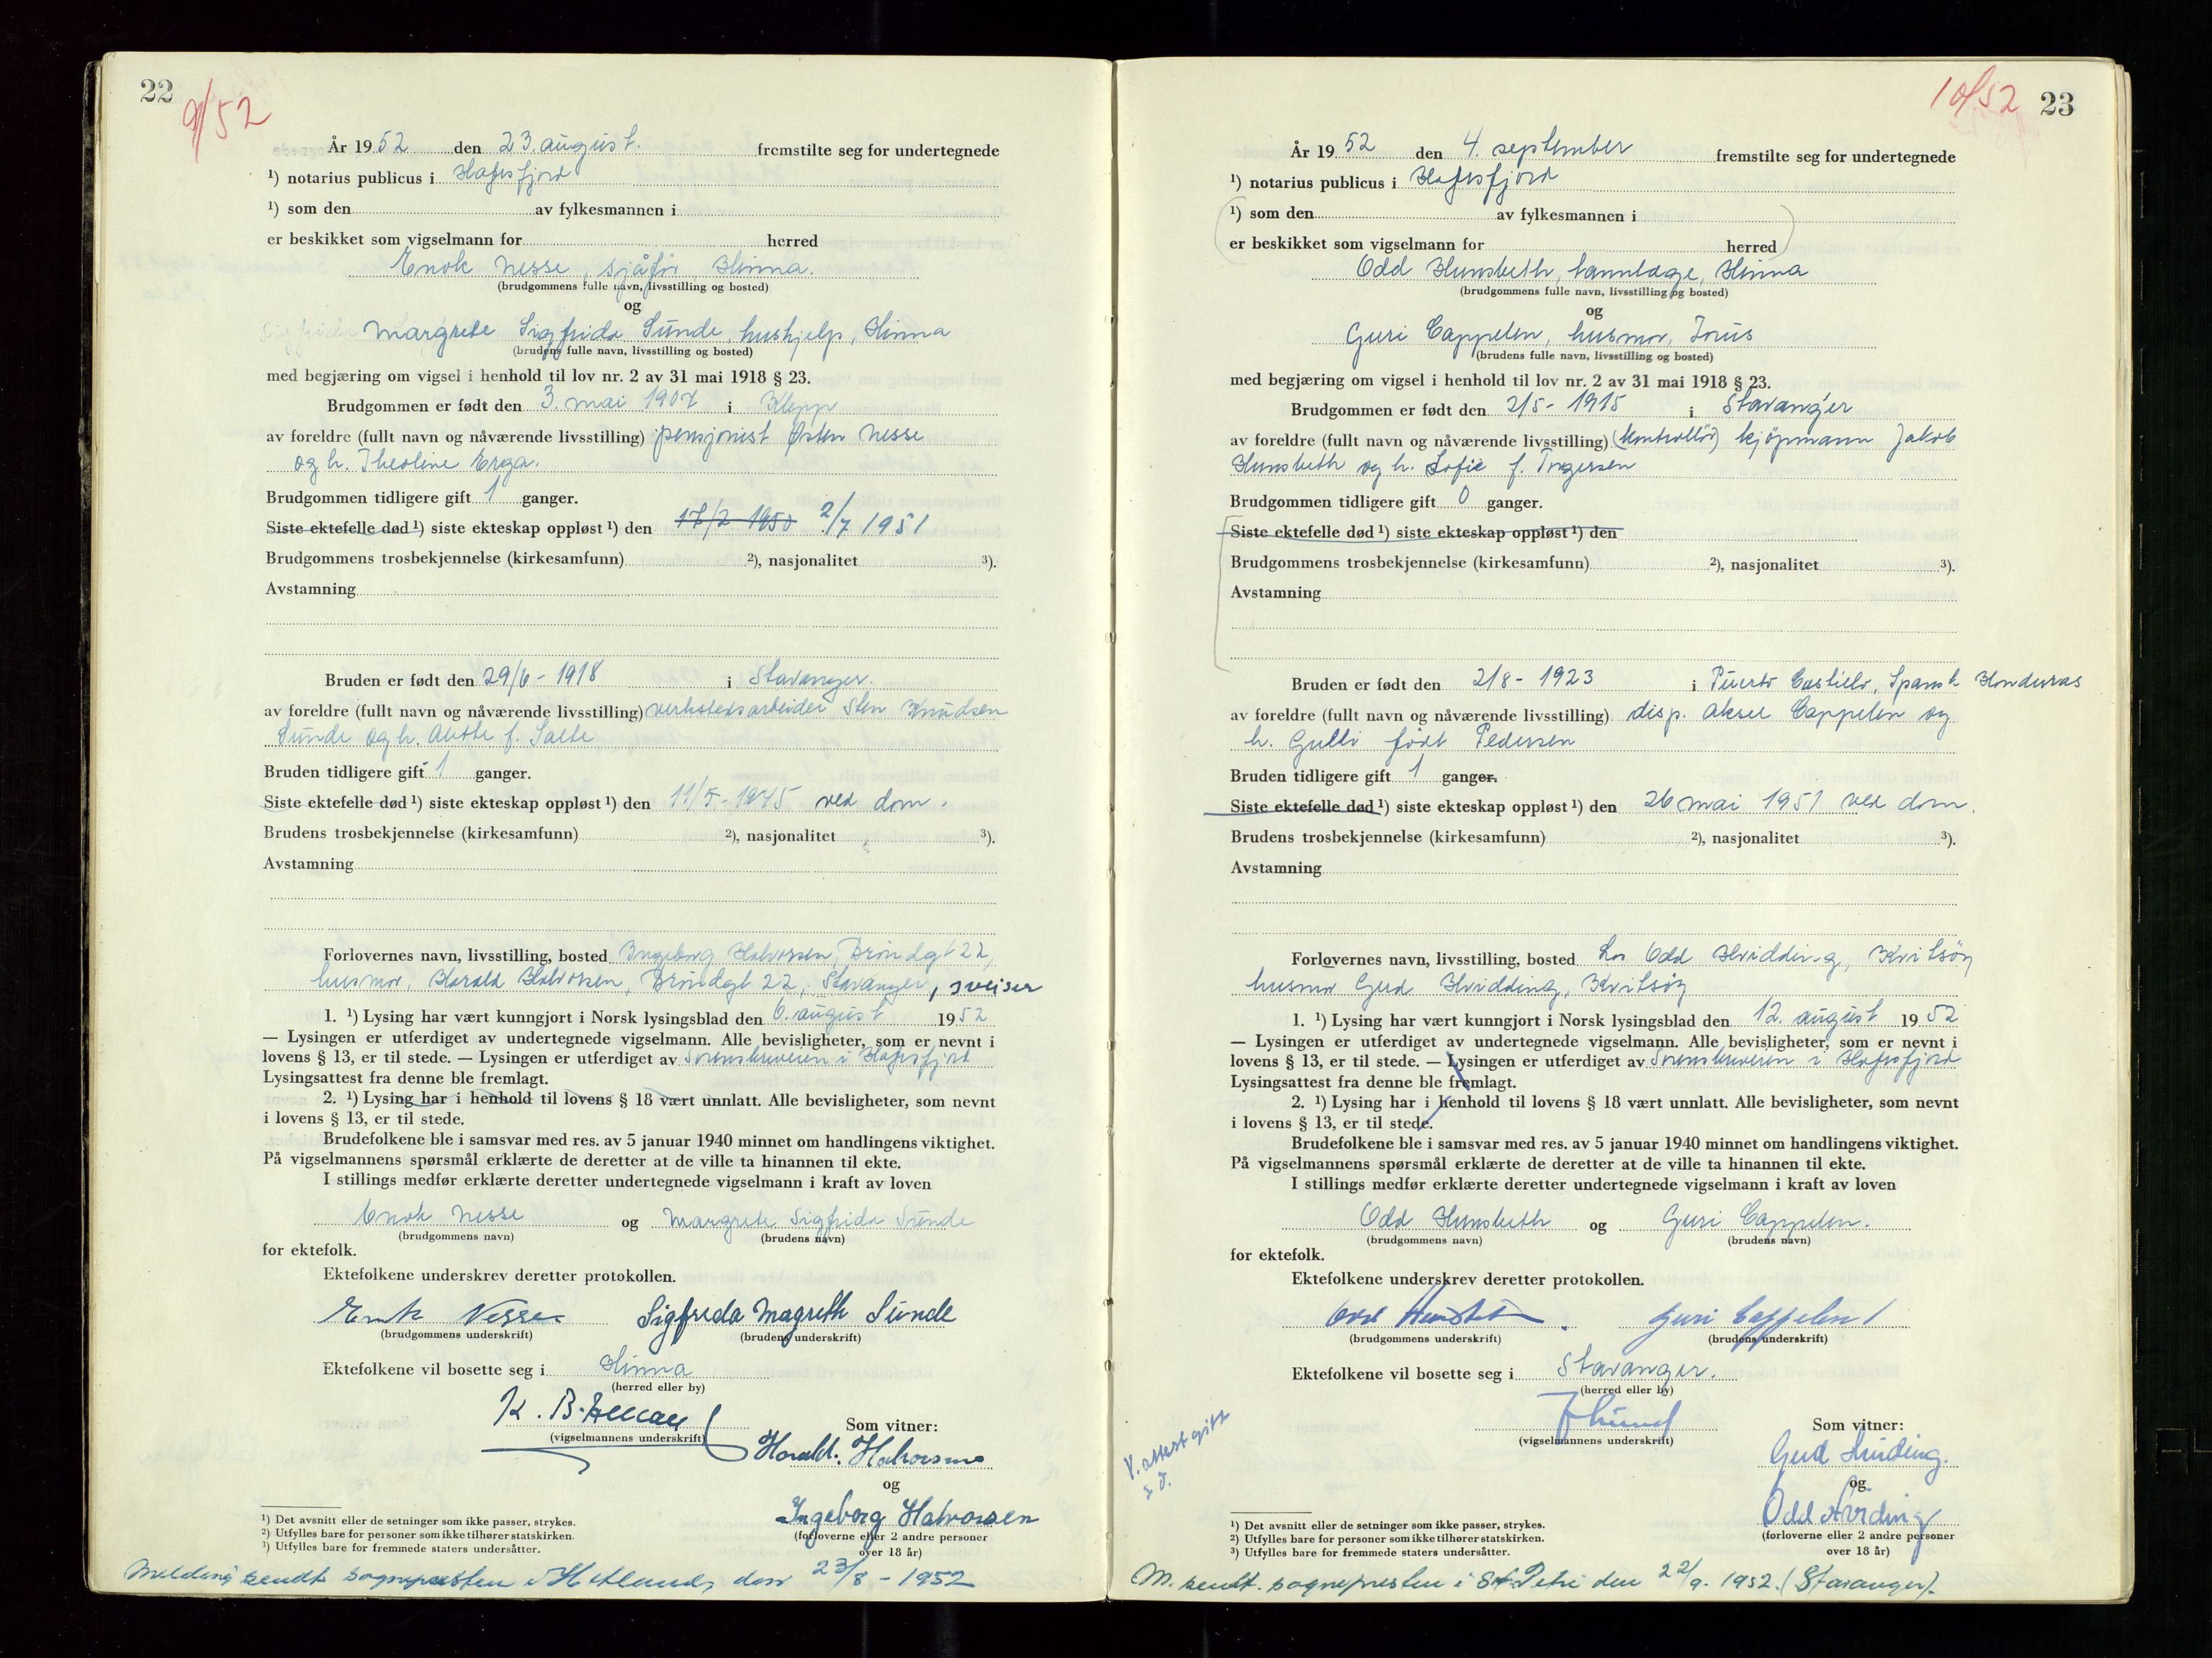 22
9/52
År 1952 den 23. august. fremstilte seg for undertegnede
¹) notarius publicus i Hafrsfjord
¹) som den av fylkesmannen i
er beskikket som vigselmann for herred
Enok Nesse, sjåfør, Hinna.
(brudgommens fulle navn, livsstilling og bosted)
og
Margrete Sigfrida Sunde, hushjelp, Hinna
(brudens fulle navn, livsstilling og bosted)
med begjæring om vigsel i henhold til lov nr. 2 av 31 mai 1918 § 23.
Brudgommen er født den 3. mai 1907 i Klepp
av foreldre (fullt navn og nåværende livsstilling) pensjonist Østen Nesse
og h. Theoline Erga.
Brudgommen tidligere gift 1 ganger.
Siste ektefelle død ¹) siste ekteskap oppløst ¹) den 17/2 1950 2/7 1951
Brudgommens trosbekjennelse (kirkesamfunn) ²), nasjonalitet ³).
Avstamning
Bruden er født den 29/6 - 1918 i Stavanger.
av foreldre (fullt navn og nåværende livsstilling) verkstedsarbeider Sten Knudsen
Sunde og h. f. Salte
Bruden tidligere gift 1 ganger.
Siste ektefelle død ¹) siste ekteskap oppløst ¹) den 11/5 - 1945 ved dom.
Brudens trosbekjennelse (kirkesamfunn) ²), nasjonalitet ³).
Avstamning
Forlovernes navn, livsstilling, bosted Ingeborg Halvorsen, Brøndgt 22,
husmor, Harald Halvorsen, Brøndgt 22, Stavanger, sveiser
1. ¹) Lysing har vært kunngjort i Norsk lysingsblad den 6. august 1952
— Lysingen er utferdiget av undertegnede vigselmann. Alle bevisligheter, som er nevnt i
lovens § 13, er til stede. — Lysingen er utferdiget av Sorenskriveren i Hafrsfjord
Lysingsattest fra denne ble fremlagt.
2. ¹) Lysing har i henhold til lovens § 18 vært unnlatt. Alle bevisligheter, som nevnt
i lovens § 13, er til stede.
Brudefolkene ble i samsvar med res. av 5 januar 1940 minnet om handlingens viktighet.
På vigselmannens spørsmål erklærte de deretter at de ville ta hinannen til ekte.
I stillings medfør erklærte deretter undertegnede vigselmann i kraft av loven
Enok Nesse og Margrete Sigfrida Sunde
(brudgommens navn) (brudens navn)
for ektefolk.
Ektefolkene underskrev deretter protokollen.
Enok Nesse Sigfrida Magreth Sunde
(brudgommens underskrift) (brudens underskrift)
Ektefolkene vil bosette seg i Hinna
(herred eller by)
K. B.
(vigselmannens underskrift)
Som vitner:
Harald. Halvorsen
og
Ingeborg Halvorsen
(forloverne eller 2 andre personer
over 18 år)
¹) Det avsnitt eller de setninger som ikke passer, strykes.
²) Utfylles bare for personer som ikke tilhører statskirken.
³) Utfylles bare for fremmede staters undersåtter.
Melding sendt sognepresten i Hetland, den 23/8 - 1952
23
10/52
År 1952 den 4. september fremstilte seg for undertegnede
¹) notarius publicus i Hafrsfjord
¹) som den av fylkesmannen i
er beskikket som vigselmann for herred
Odd Hunsbeth, tannlæge, Hinna
(brudgommens fulle navn, livsstilling og bosted)
og
Guri Cappelen, husmor,
(brudens fulle navn, livsstilling og bosted)
med begjæring om vigsel i henhold til lov nr. 2 av 31 mai 1918 § 23.
Brudgommen er født den 2/5 - 1915 i Stavanger
av foreldre (fullt navn og nåværende livsstilling) (kontrollør) kjøpmann Jakob
Hunsbeth og h. Sofie f. Ingersen
Brudgommen tidligere gift 0 ganger.
Siste ektefelle død ¹) siste ekteskap oppløst ¹) den
Brudgommens trosbekjennelse (kirkesamfunn) ²), nasjonalitet ³).
Avstamning
Bruden er født den 2/8 - 1923 i Puerto Castillo, Spansk Honduras
av foreldre (fullt navn og nåværende livsstilling) disp. Aksel Cappelen og
h. Gulli født Pedersen
Bruden tidligere gift 1 ganger.
Siste ektefelle død ¹) siste ekteskap oppløst ¹) den 26 mai 1951 ved dom.
Brudens trosbekjennelse (kirkesamfunn) ²), nasjonalitet ³).
Avstamning
Forlovernes navn, livsstilling, bosted Los Odd Hvidding, Kvitsøy
husmor Gerd Hvidding, Kvitsøy
1. ¹) Lysing har vært kunngjort i Norsk lysingsblad den 12. august 1952
— Lysingen er utferdiget av undertegnede vigselmann. Alle bevisligheter, som er nevnt i
lovens § 13, er til stede. — Lysingen er utferdiget av Sorenskriveren i Hafrsfjord
Lysingsattest fra denne ble fremlagt.
2. ¹) Lysing har i henhold til lovens § 18 vært unnlatt. Alle bevisligheter, som nevnt
i lovens § 13, er til stede.
Brudefolkene ble i samsvar med res. av 5 januar 1940 minnet om handlingens viktighet.
På vigselmannens spørsmål erklærte de deretter at de ville ta hinannen til ekte.
I stillings medfør erklærte deretter undertegnede vigselmann i kraft av loven
Odd Hunsbeth og Guri Cappelen.
(brudgommens navn) (brudens navn)
for ektefolk.
Ektefolkene underskrev deretter protokollen.
Odd Hunsbeth Guri Cappelen
(brudgommens underskrift) (brudens underskrift)
Ektefolkene vil bosette seg i Stavanger.
(herred eller by)
(vigselmannens underskrift)
V. attest gitt
s. d.
Som vitner:
Gerd Hvidding.
og
Odd Hvidding
(forloverne eller 2 andre personer
over 18 år)
¹) Det avsnitt eller de setninger som ikke passer, strykes.
²) Utfylles bare for personer som ikke tilhører statskirken.
³) Utfylles bare for fremmede staters undersåtter.
M. sendt. sognepresten i St. Petri den 22/9. 1952. (Stavanger).